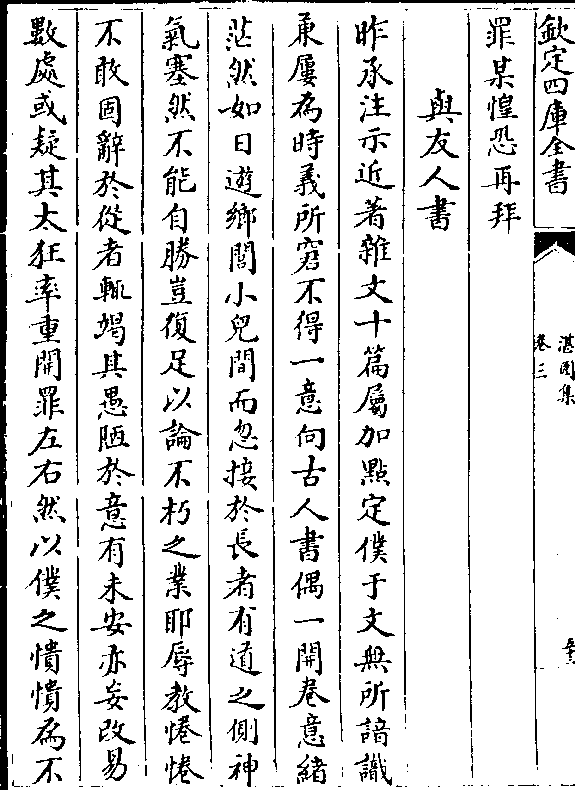 欽定四庫全書
湛園集
卷三
罪某惶恐再拜
與友人書
昨承注示近著雜文十篇屬加點定僕于文無所諳識
兼屢為時義所窘不得一意向古人書偶一開卷意緒
茫然如日遊鄉閭小兒間而忽接於長者有道之側神
氣塞然不能自勝豈復足以論不朽之業耶辱教惓惓
不敢固辭於從者輒竭其愚陋於意有未安亦妄改易
數處或疑其太狂率重開罪左右然以僕之憒憒為不